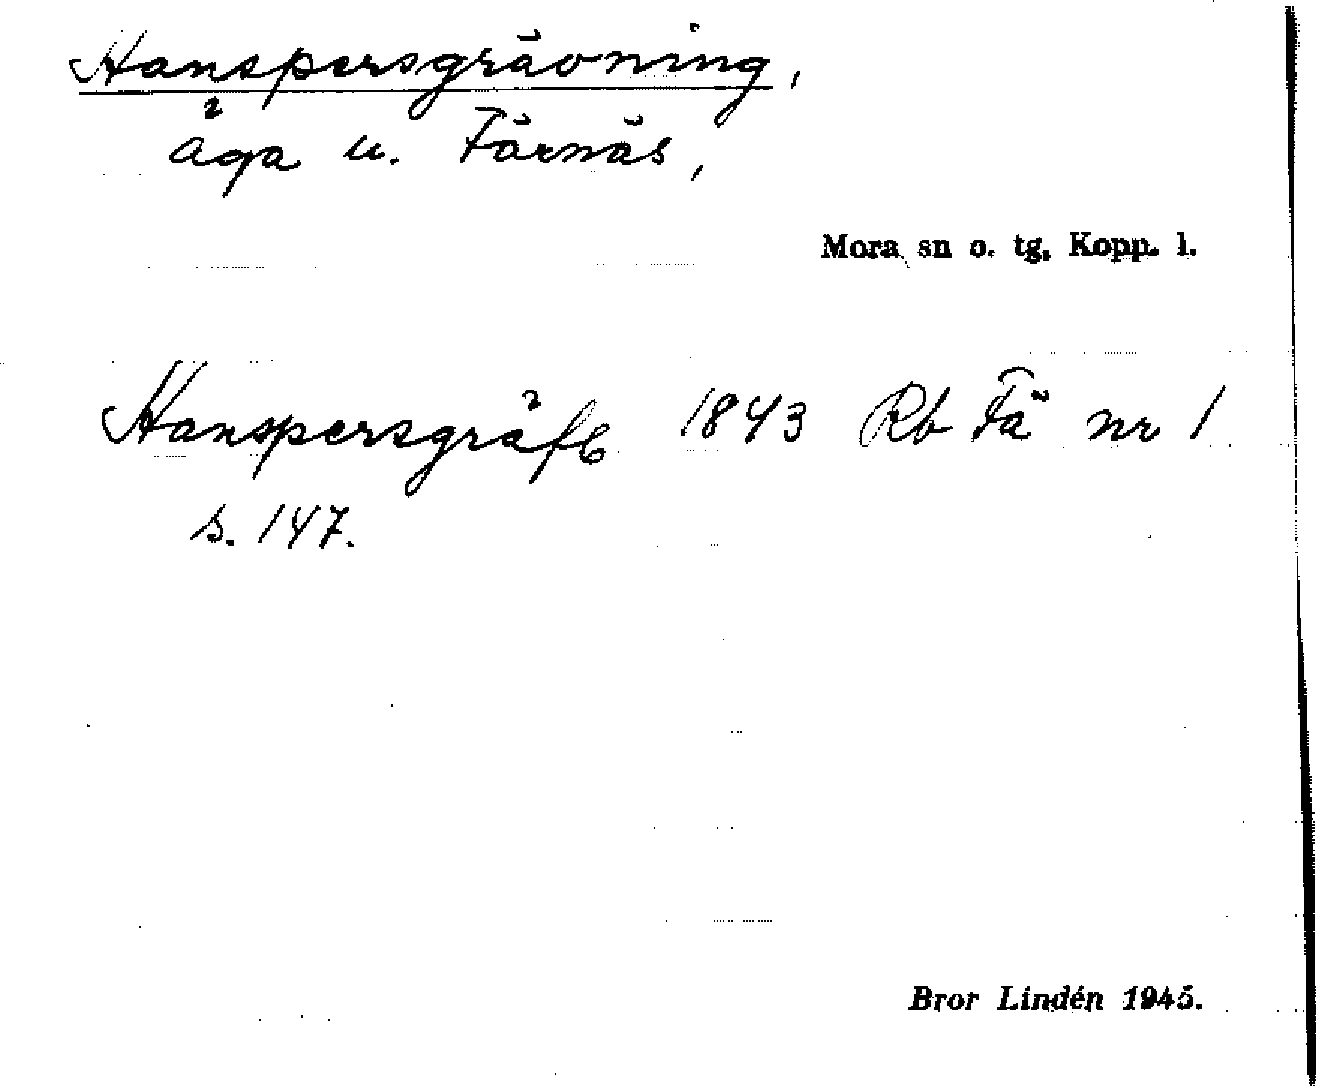 Hanspersgrävning,
äga u. Färnäs,
Mora sn o. tg. Kopp. l.
Hanspersgräfb 1843 Rb Fä nr 1
s. 147.
Bror Lindén 1945.